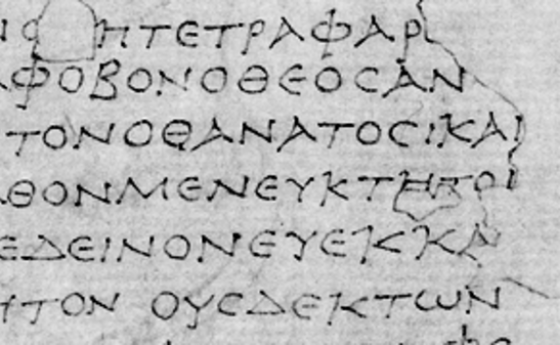 ΗΤΕΤΡΑΦΑΡ
ΑΦΟΒΟΝΟΘΕΟϹΑΝ
ΤΟΝΟΘΑΝΑΤΟϹΚΑΙ
ΑΘΟΝΜΕΝΕΥΚΤΗΤΟΙ
ΕΔΕΙΝΟΝΕΥΕΚΚΑ
ΗΤΟΝ ΟΥϹΔΕΚΤΩΝ